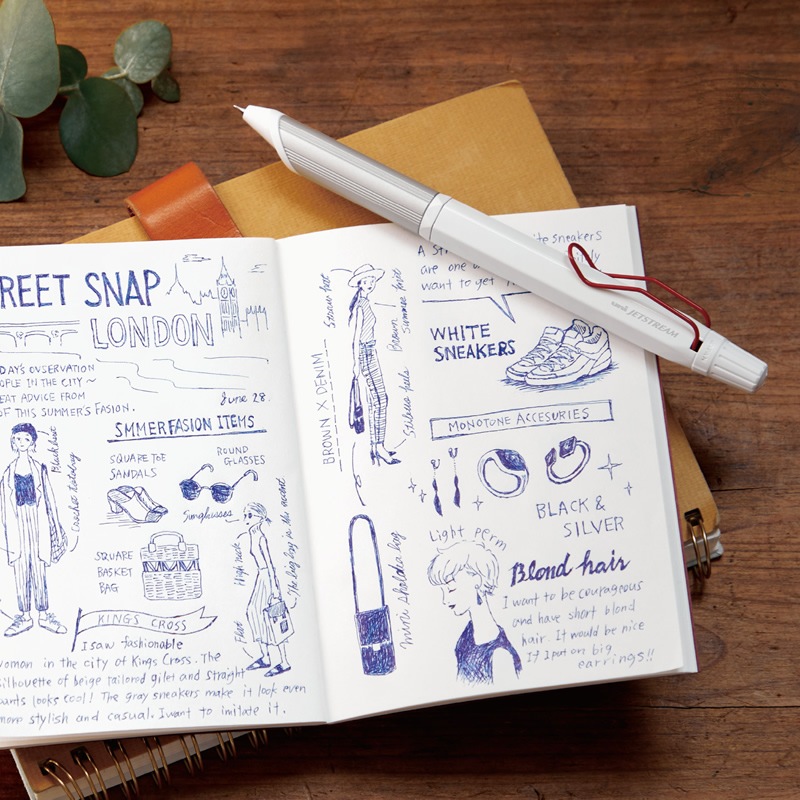 REET SNAP
LONDON
DAY'S OVSERVATION
OPLE IN THE CITY ~
EAT ADVICE FROM
OF THIS SUMMER'S FASION.
June 28.
SMMER FASION ITEMS
Black hat
SQUARE TOE
SANDALS
ROUND
GLASSES
Sunglasses
SQUARE
BASKET
BAG
High neck
The big bag is the accent
Flat
KINGS CROSS
I saw fashionable
woman in the city of Kings Cross. The
silhouette of beige tailored gilet and straight
pants looks cool! The gray sneakers make it look even
more stylish and casual. I want to imitate it.
Straw hat
BROWN X DENIM
Brown
Summer knit
mini shoulder bag
white sneakers
A
are one
want to get
WHITE
SNEAKERS
MONOTONE ACCESURIES
BLACK &
SILVER
Light perm
Blond hair
I want to be courageous
and have short blond
hair. It would be nice
If I put on big
earrings!!
uni JETSTREAM